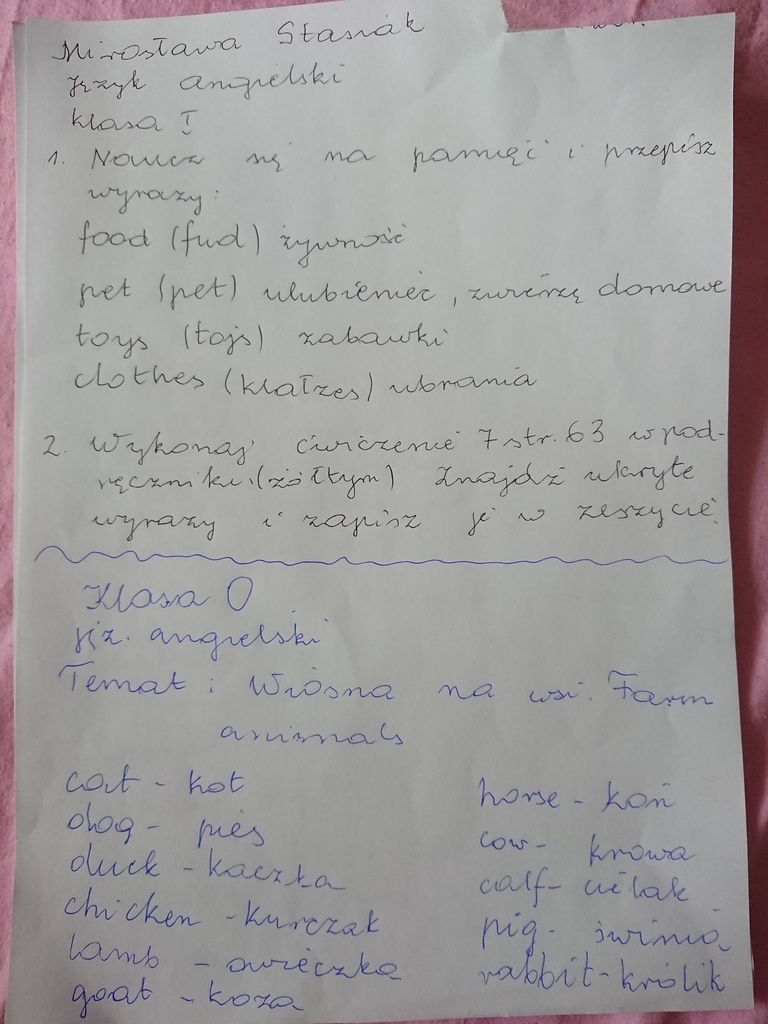 Mirosława Stasiak
Język angielski
klasa I
1. Naucz się na pamięć i przepisz
wyrazy:
food (fud) żywność
pet (pet) ulubieniec, zwierzę domowe
toys (tojs) zabawki
clothes (kłałzes) ubrania
2. Wykonaj ćwiczenie 7 str. 63 w pod-
ręczniku (żółtym) Znajdź ukryte
wyrazy i zapisz je w zeszycie.
Klasa 0
jęz. angielski
Temat: Wiosna na wsi. Farm
animals
cat - kot
dog - pies
duck - kaczka
chicken - kurczak
lamb - owieczka
goat - koza
horse - koń
cow - krowa
calf - cielak
pig - świnia
rabbit - królik